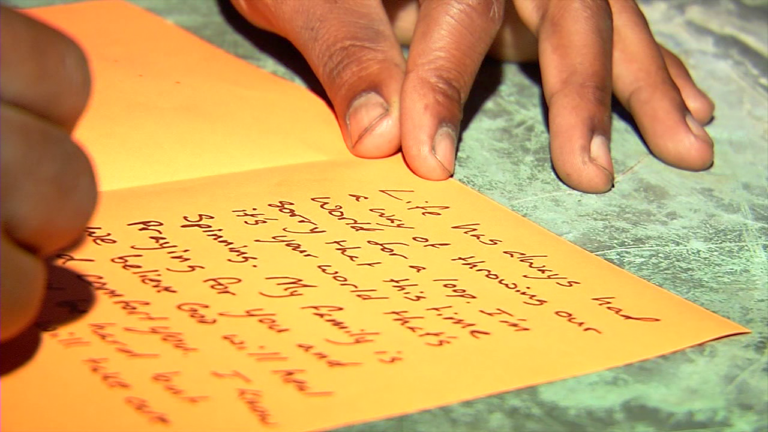 Life has always had
a way of throwing our
World for a loop I'm
sorry that this time
it's your world that's
Spinning. My family is
Praying for you and
we believe God will heal
comfort you I know
hard but
take care